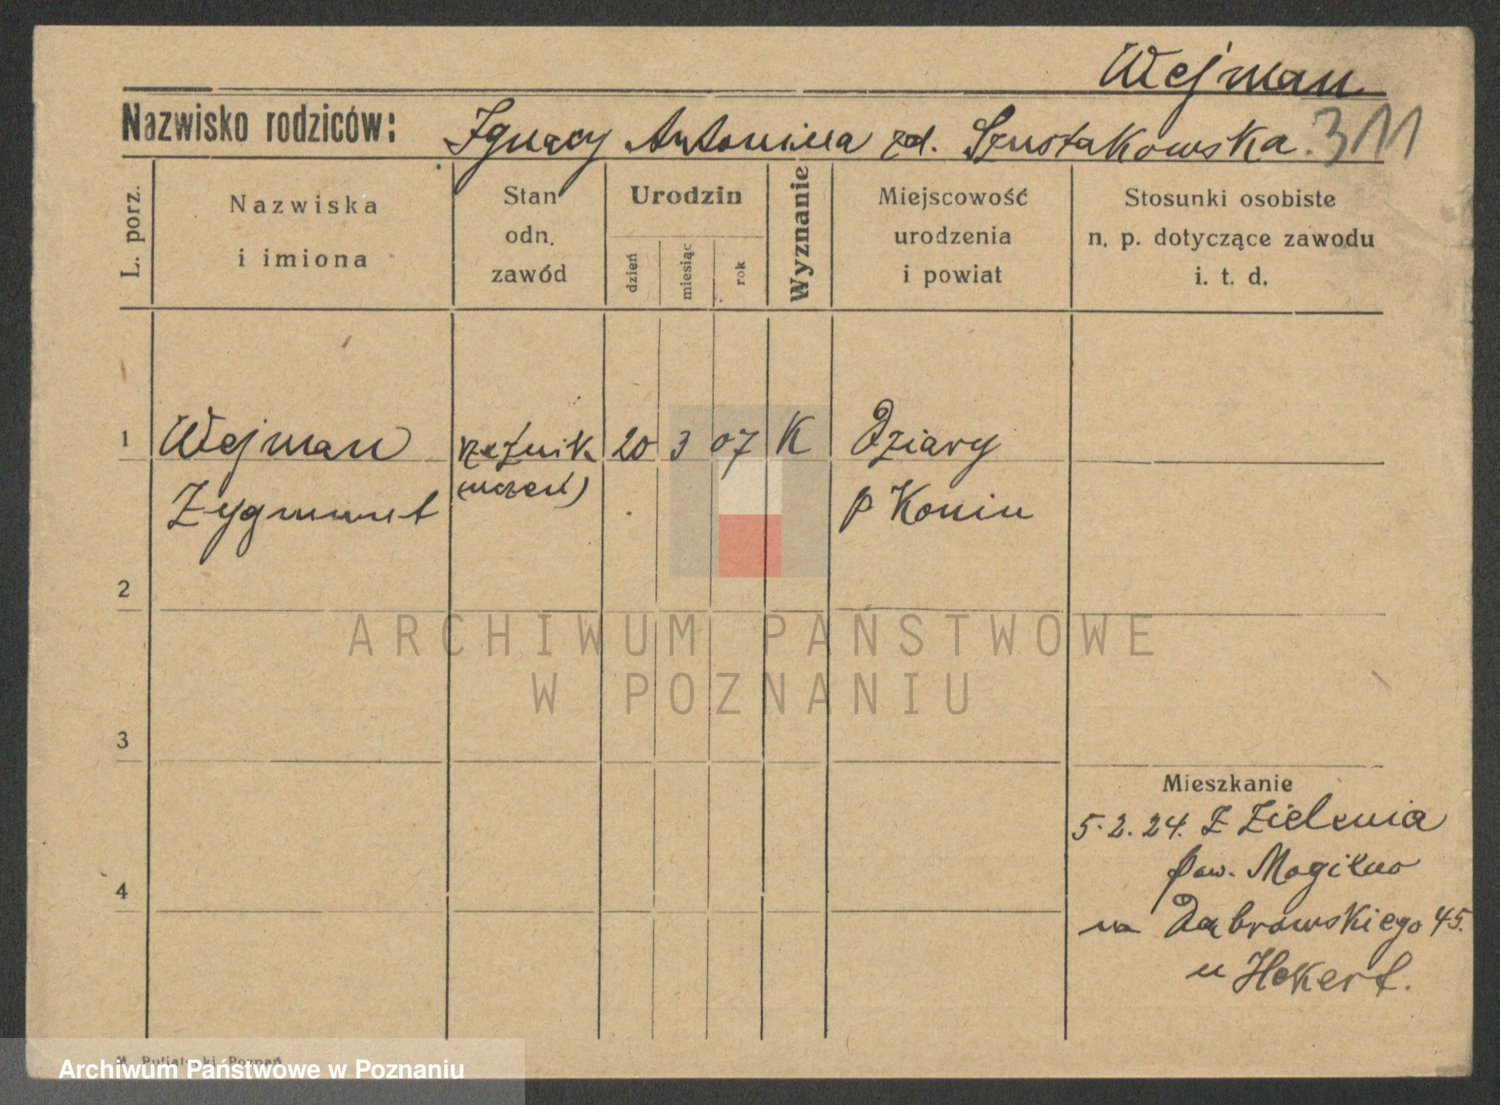 Wejman
Nazwisko rodziców: Ignacy Antonina zd. Szustakowska. 311
L. porz.
Nazwiska i imiona
Stan odn. zawód
Urodzin
dzień
miesiąc
rok
Wyznanie
Miejscowość urodzenia i powiat
Stosunki osobiste n. p. dotyczące zawodu i. t. d.
1 Wejman rzeźnik 20 3 07 K Dziary
Zygmunt (uczeń) p Konin
2
ARCHIWUM PAŃSTWOWE
W POZNANIU
3
Mieszkanie
5.2.24. Z Zielenia
pow. Mogilno
4
na Dąbrowskiego 45.
u Hekert.
Archiwum Państwowe w Poznaniu